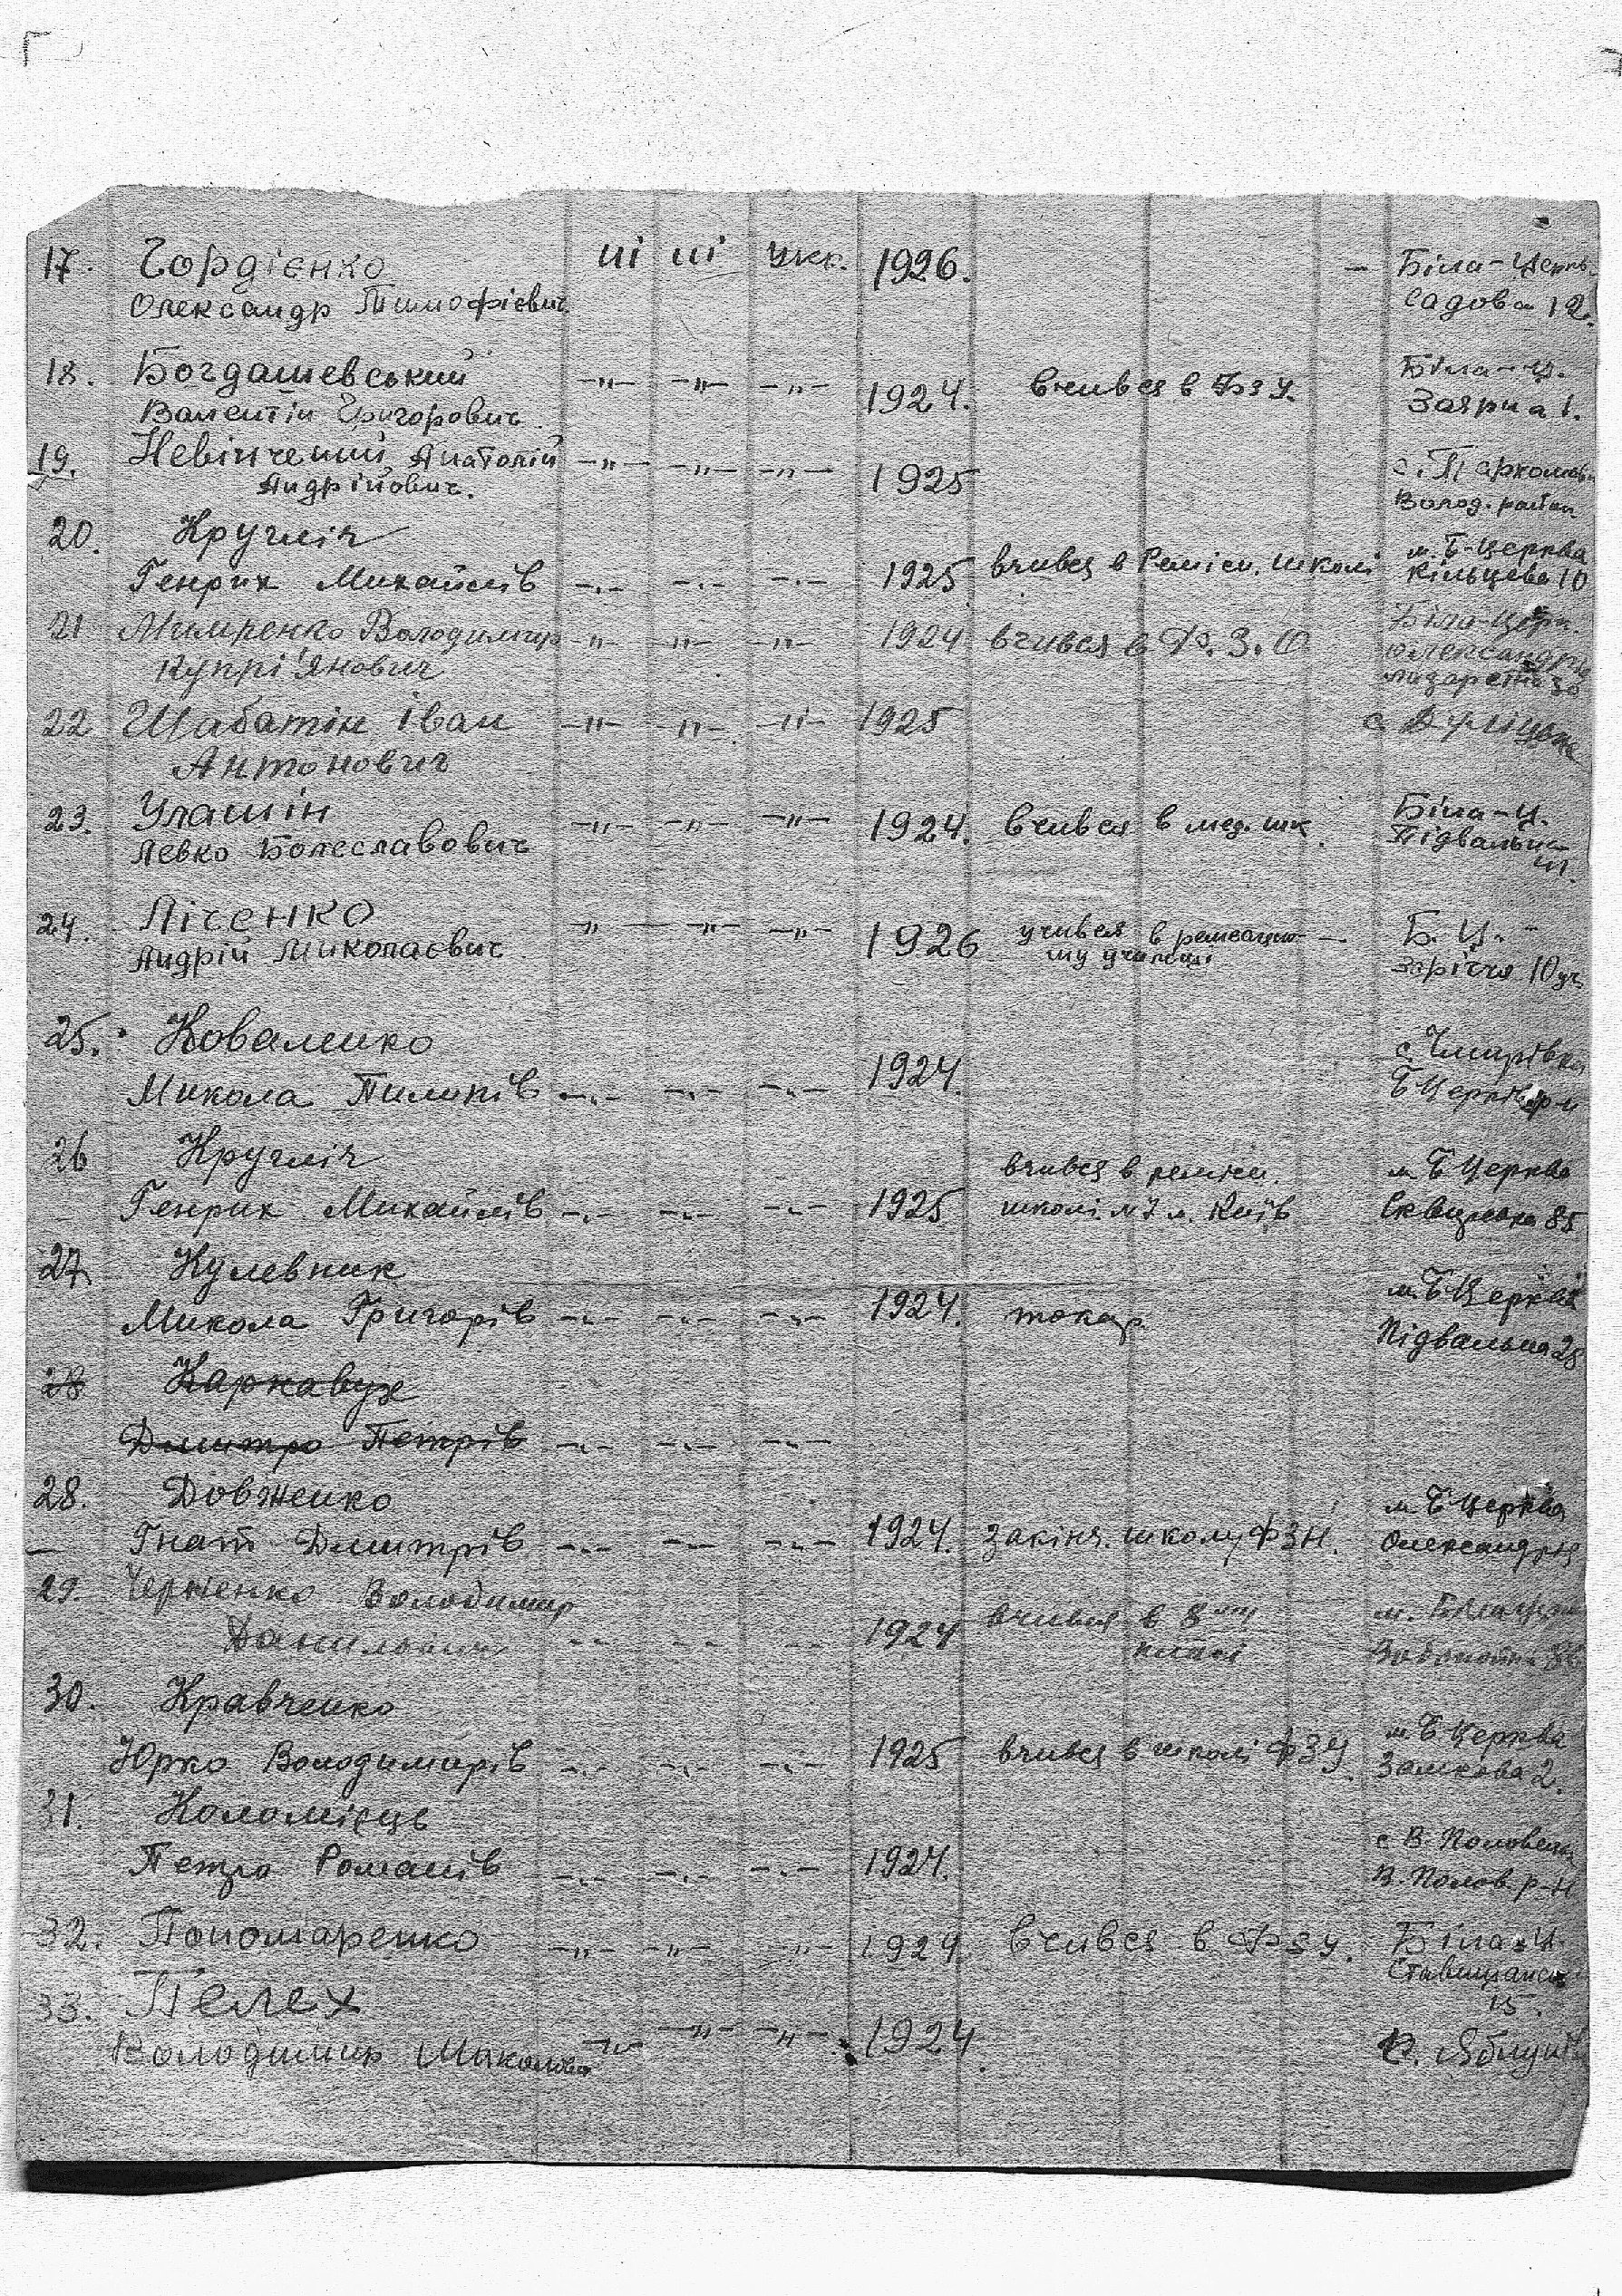 17. Гордієнко ші ші укр. 1926. – Біла-Церкв.
Олександр Тимофієвич Садова 12.
18. Богдашевський -"- -"- -"- 1924. вчився в Фзу. Біла-Ц.
Валентін Григорович Заярна 1.
19. Невінчений Анатолій -"- -"- -"- 1925
Андрійович. Волод. район
20. Кругліч
Генрих Михайлів -"- -"- -"- 1925 вчився в Ремісн. школі м. Б-Церква
Кільцева 10
21 Володимир -"- -"- -"- 1924 вчився в Ф.З.О Біла-Церк.
Купрі'янович Олександрія
22 Шабатін Іван -"- -"- -"- 1925 с.
Антонович
23. Улашін -"- -"- -"- 1924. вчився в мед. шк. Біла-Ц.
Левко Болеславович Підвальна
24. Лісенко " -"- -"- 1926 учився в ремесцно- – Б. Ц. -
Андрій Миколаєвич му училищі Заріччя 10
25. Коваленко с.
Микола Пилипів -"- -"- -"- 1924. Б Церків р-н
26 Кругліч вчився в ремісн. м Б Церква
Генрих Михайлів -"- -"- -"- 1925 школі м. Київ Сквирська 85
27 Кулевник м. Б Церква
Микола Григорів -"- -"- -"- 1924. токар Підвальна 28
28
Дмитро Петрів -"- -"- -"-
28. Довженко м Б Церква
Гнат Дмитрів -"- -"- -"- 1924. закінч. школу ФЗН. Олександрія
29. Черненко Володимир вчився в 8 м.
-"- -"- -"- 1924 класі
30. Кравченко м Б Церква
Юрко Володимирів -"- -"- -"- 1925 вчився в школі ФЗУ Замкова 2.
31. Коломієць с В. Половецьк
Петро Романів -"- -"- -"- 1924. В. Полов. р-н
32. Пономаренко -"- -"- -"- 1924 вчився в Фзу. Біла-Ц.
Ставищанськ
15.
33. Пелех
Володимир -"- -"- -"- 1924.